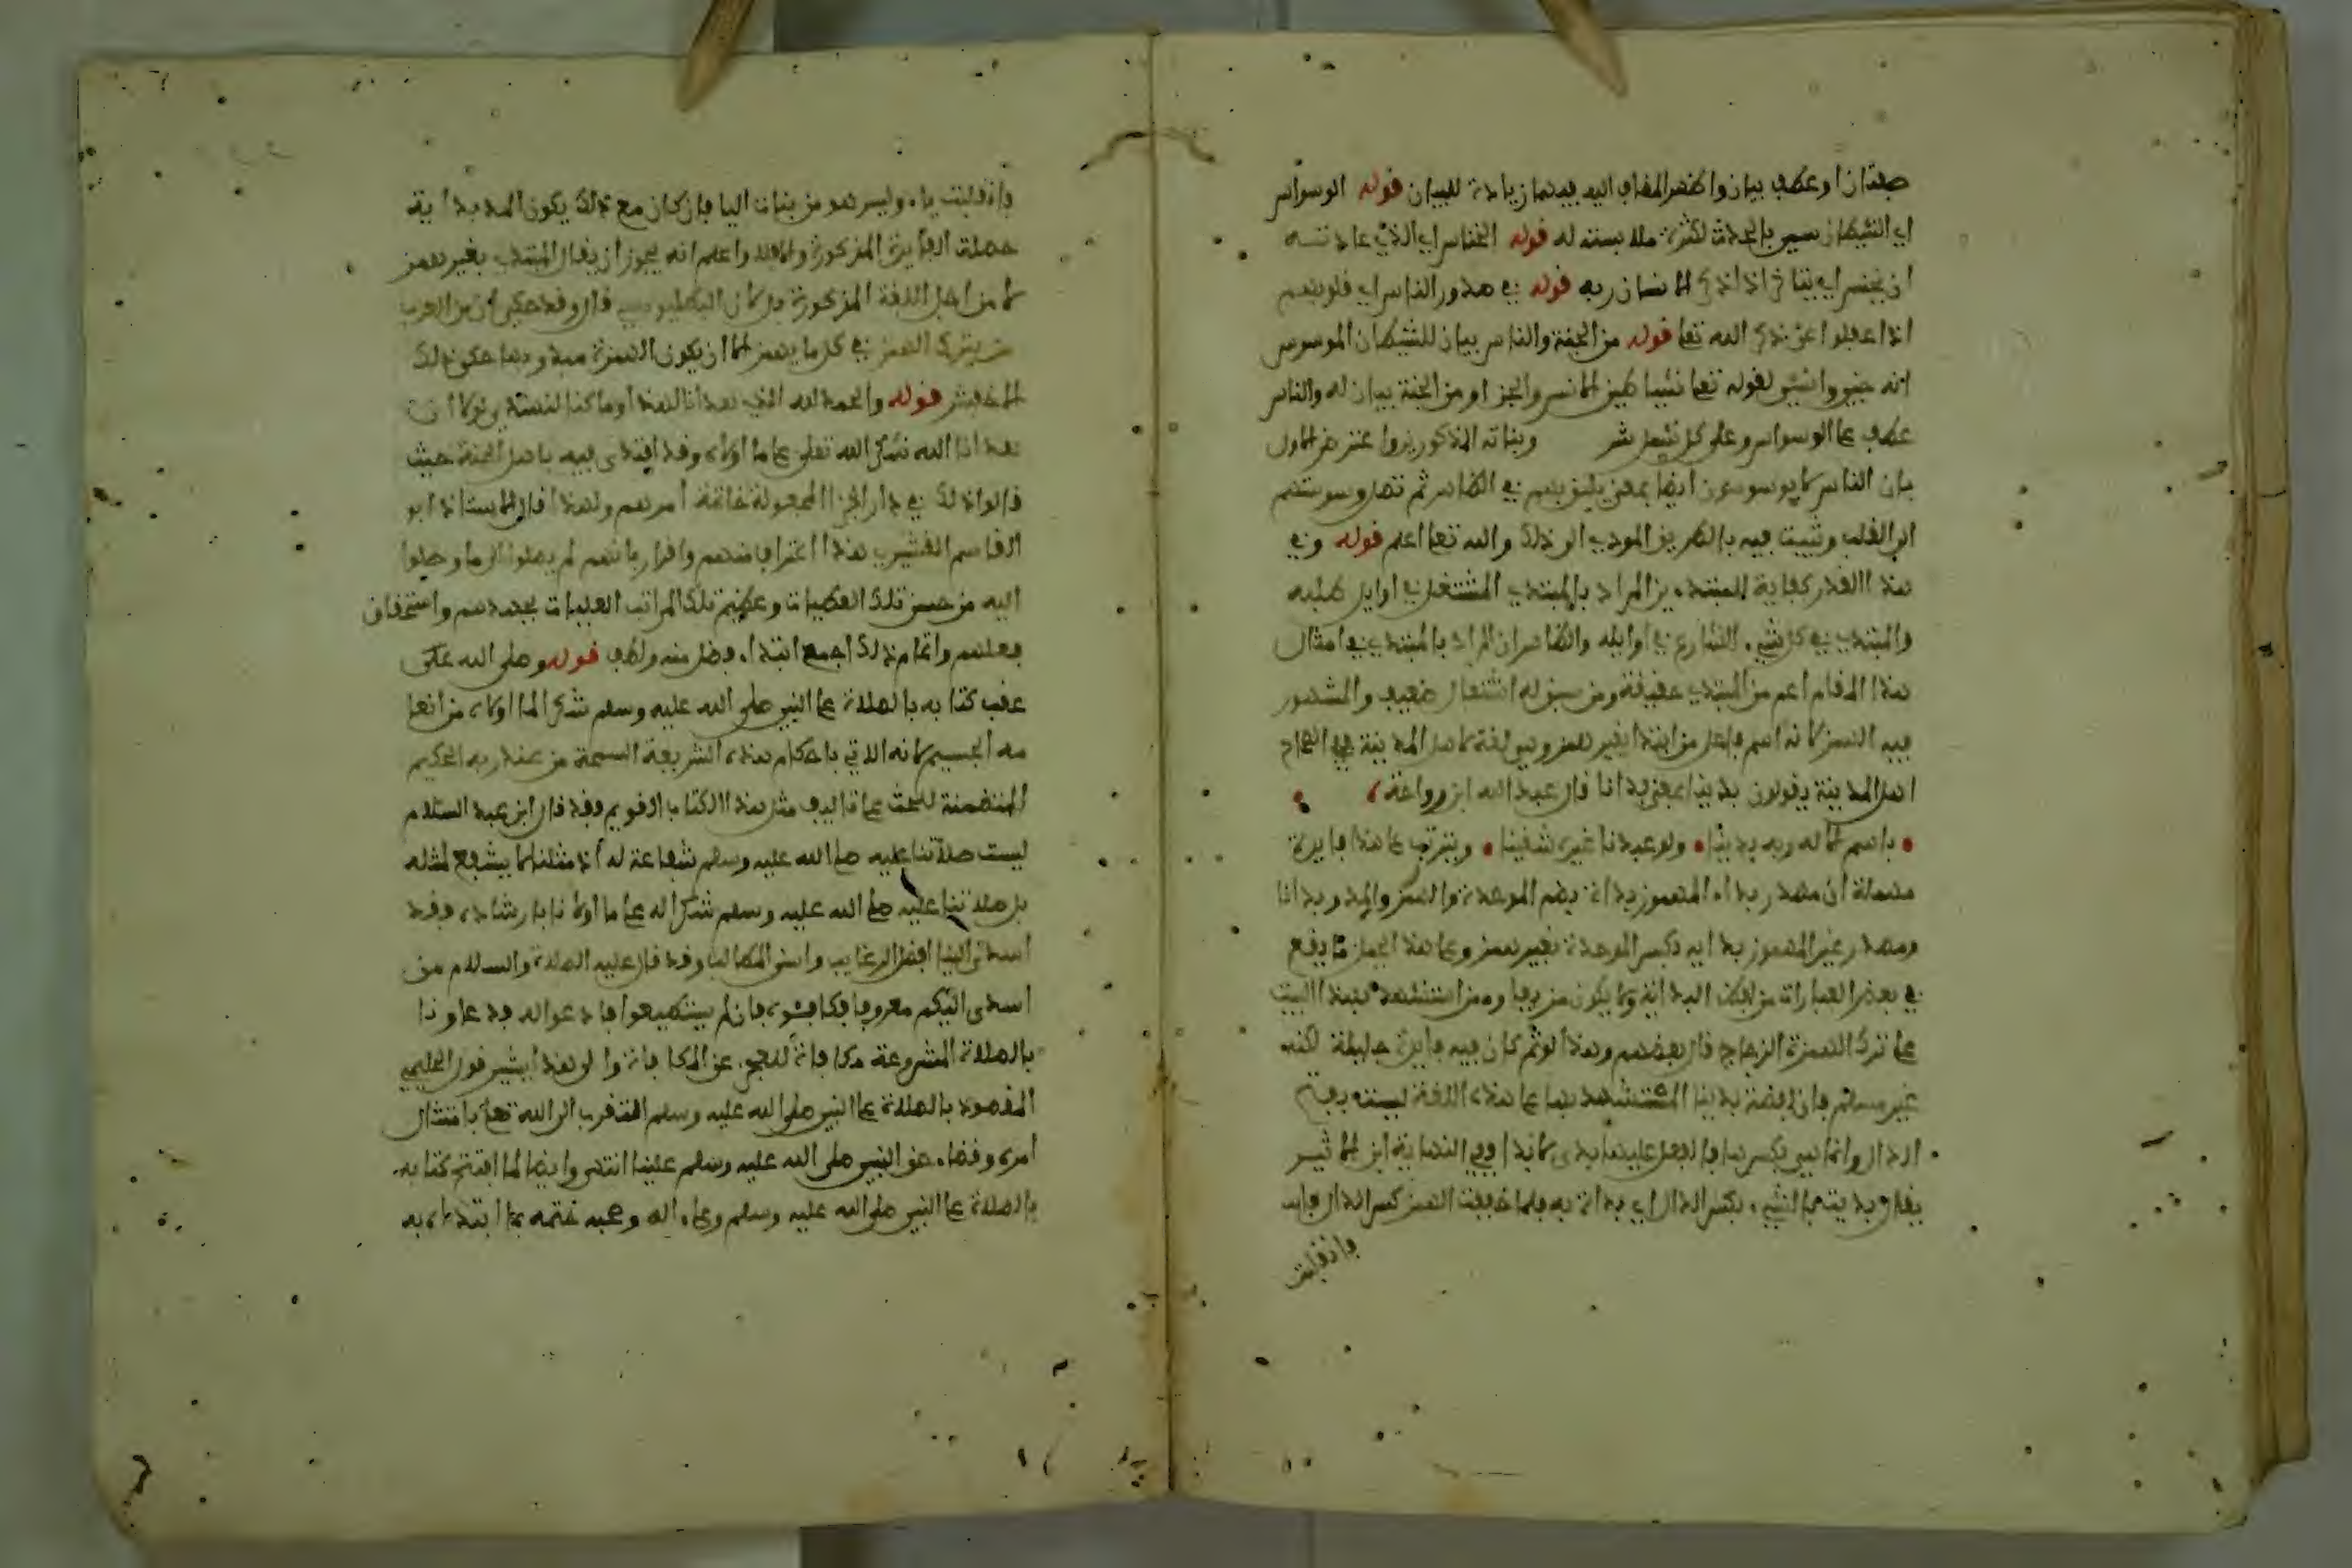 صفتان او عطف بيان واظهر المضاف اليه فيهما زيادة للبيان قوله الوسواس
اي الشيطان سمي بالحدث لكثرة ملابسته له قوله الخناس اي الذي عادته
ان يخنس اي يتاخر اذا ذكر الانسان ربه قوله في صدور الناس اي قلوبهم
اذا غفلوا عن ذكر الله تعا قوله من الجنة والناس بيان للشيطان الموسوس
انه جني وانسي لقوله تعا شياطين الانس والجن او من الجنة بيان له والناس
عطف على الوسواس وعلى كل شمل شر وبناته المذكورين واعترض الاول
بان الناس لا يوسوسون ايضا بمعنى يليق بهم في الظاهر ثم تصل وسوستهم
الى القلب وتثبت فيه بالطريق المودي الى ذلك والله تعا اعلم قوله وفي
هذا القدر كفاية للمبتدءين المراد بالمبتدي المشتغل في اوايل طلبه
والمبتدي في كل شيء الشارع في اوايله والظاهر ان المراد بالمبتدي في امثال
هذا المقام اعم من المبتدي حقيقة ومن سبق له اشتغال ضعيف والمشهور
فيه الهمز لانه اسم فاعل من ابتدا بغير همز وهي لغة لاهل المدينة
اهل المدينة يقولون بدينا بمعنى بدانا قال عبد الله ابن رواحة
باسم الاله وبه بدينا ولو عبدنا غيره شقينا ويترتب على هذا فايدة
مهملة ان مصدر بداء المهموز بداءة بضم الموحدة والهمز والمد وبدانا
ومصدر غير المهموز بداية بكسر الموحدة بغير همز وعلى هذا يحمل ما يقع
في بعض العبارات من لفظ البداية ولا يكون مزيفا ومن استشهد بهذا البيت
على ترك الهمزة الزجاج قال بعضهم وهذا لو تم كان فيه فايدة جليلة لكنه
غير مسلم فان لفظة بدينا المستشهد بها على هذه اللغة ليست بفتح
الدال وانما هي بكسرها فالفعل عليها بدى لا بدا ففي النهاية ابن الاثير
يقال بديت بالشيء بكسر الدال اي بدات به فلما خففت الهمز كسر الدال فانـ
فانقلبت
فانقلبت ياء وليس هو من بنات اليا فان كان مع ذلك يكون المد بداية
حصلت الفايدة المذكورة والا فلا واعلم انه يجوز ان يقال المبتدي بغير همز
لا من اهل اللغة المذكورة بل لان البطليوسي قال وقد حكى ان من العرب
من يترك الهمز في كل ما يهمز الا ان يكون الهمزة مبدوءبها حكى ذلك
الاخفش قوله والحمد لله الذي هدانا لهذا وما كنا لنهتدي لولا ان
هدانا الله شكر الله تعلى على ما اولاه وقد اقتدى فيه باهل الجنة حيث
قالوا ذلك في دار الجزا المجعولة خاتمة امرهم ولهذا قال الاستاذ ابو
القاسم القشيري هذا اعتراف منهم واقرار بانهم لم يصلوا الى ما وصلوا
اليه من حسن تلك العطيات وعظيم تلك المراتب العليات بجهدهم واستحقاق
فعلهم وانما ذلك اجمع ابتداء فضل منه ولطف قوله وصلى الله على
عقب كتابه بالصلاة على النبي صلى الله عليه وسلم شكرا لما اولاه من انعا
مه الجسيم لانه الاتي باحكام هذه الشريعة السمحة من عند ربه الحكيم
المتضمنة للحث على تاليف مثل هذا الكتاب القويم فقد قال ابن عبد السلام
ليست صلاتنا عليه صلى الله عليه وسلم شفاعة له اذ مثلنا لا يشفع لمثله
بل صلاتنا عليه صلى الله عليه وسلم شكرا له على ما اولانا بارشاده فقد
اسدى الينا افضل الرغايب واسنى المطالب وقد قال عليه الصلاة والسلام من
اسدى اليكم معروفا فكافئوه فان لم يستطيعوا فادعوا له فدعاونا
بالصلاة المشروعة مكافاة للعجز عن المكافاة والى هذا يشير قول الحليمي
المقصود بالصلاة على النبي صلى الله عليه وسلم التقرب الى الله تعا بامتثال
امره وقضاء حق النبي صلى الله عليه وسلم علينا انتهى وايضا لما افتتح كتابه
بالصلاة على النبي صلى الله عليه وسلم وعلى اله وصحبه ختمه بما ابتداه به